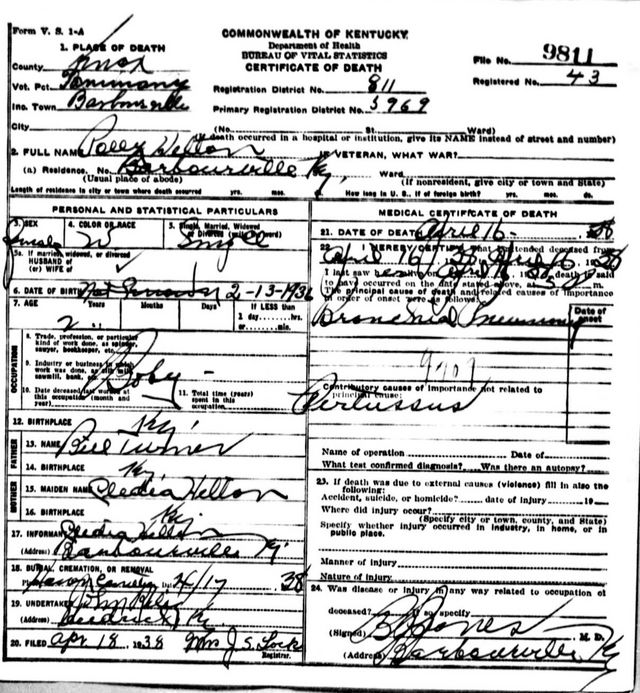 Form V. S. 1-A
COMMONWEALTH OF KENTUCKY
Department of Health
BUREAU OF VITAL STATISTICS
CERTIFICATE OF DEATH
File No. 9811
Registered No. 43
1. PLACE OF DEATH
County Knox
Vot. Pct.
Inc. Town Barbourville
City
Registration District No. 811
Primary Registration District No. 5969
(No. St. Ward)
(If death occurred in a hospital or institution, give its NAME instead of street and number)
2. FULL NAME Helton
IF VETERAN, WHAT WAR?
(a) Residence. No. Barbourville Ky. Ward
(Usual place of abode) (If nonresident, give city or town and State)
Length of residence in city or town where death occurred yrs. mos. ds. How long in U. S., if of foreign birth? yrs. mos. ds.
PERSONAL AND STATISTICAL PARTICULARS
3. SEX Female
4. COLOR OR RACE W
5. Single, Married, Widowed or Divorced (write the word) Single
5a. If married, widowed, or divorced
HUSBAND of
(or) WIFE of
6. DATE OF BIRTH 2-13-1936
7. AGE Years Months Days If LESS than
1 day, hrs.
or min.
2
OCCUPATION
8. Trade, profession, or particular
kind of work done, as spinner,
sawyer, bookkeeper, etc.
9. Industry or business in which
work was done, as silk mill,
sawmill, bank, etc.
10. Date deceased last worked at
this occupation (month and
year)
11. Total time (years)
spent in this
occupation
12. BIRTHPLACE Ky.
FATHER
13. NAME Bill Turner
14. BIRTHPLACE Ky.
MOTHER
15. MAIDEN NAME Cledia Helton
16. BIRTHPLACE Ky
17. INFORMANT Cledia Helton
(Address) Barbourville Ky
18. BURIAL, CREMATION, OR REMOVAL
Date 4/17 38
19. UNDERTAKER
(Address) Ky.
20. FILED Apr 18 1938 Mrs J. S. Lock
Registrar.
MEDICAL CERTIFICATE OF DEATH
21. DATE OF DEATH April 16- 38
22. I HEREBY CERTIFY, That I attended deceased from
April 16, 38, April 16 38
I last saw h er alive on April 16 38, death is said
to have occurred on the date stated above, at m.
The principal cause of death and related causes of importance
in order of onset were as follows:
Date of onset
Pneumony
Contributory causes of importance not related to
principal cause:
Pertussus
Name of operation Date of
What test confirmed diagnosis? Was there an autopsy?
23. If death was due to external causes (violence) fill in also the
following:
Accident, suicide, or homicide? date of injury 19
Where did injury occur?
(Specify city or town, county, and State)
Specify whether injury occurred in industry, in home, or in
public place.
Manner of injury
Nature of injury
24. Was disease or injury in any way related to occupation of
deceased? If so, specify
(Signed) Jones M. D.
(Address) Barbourville Ky